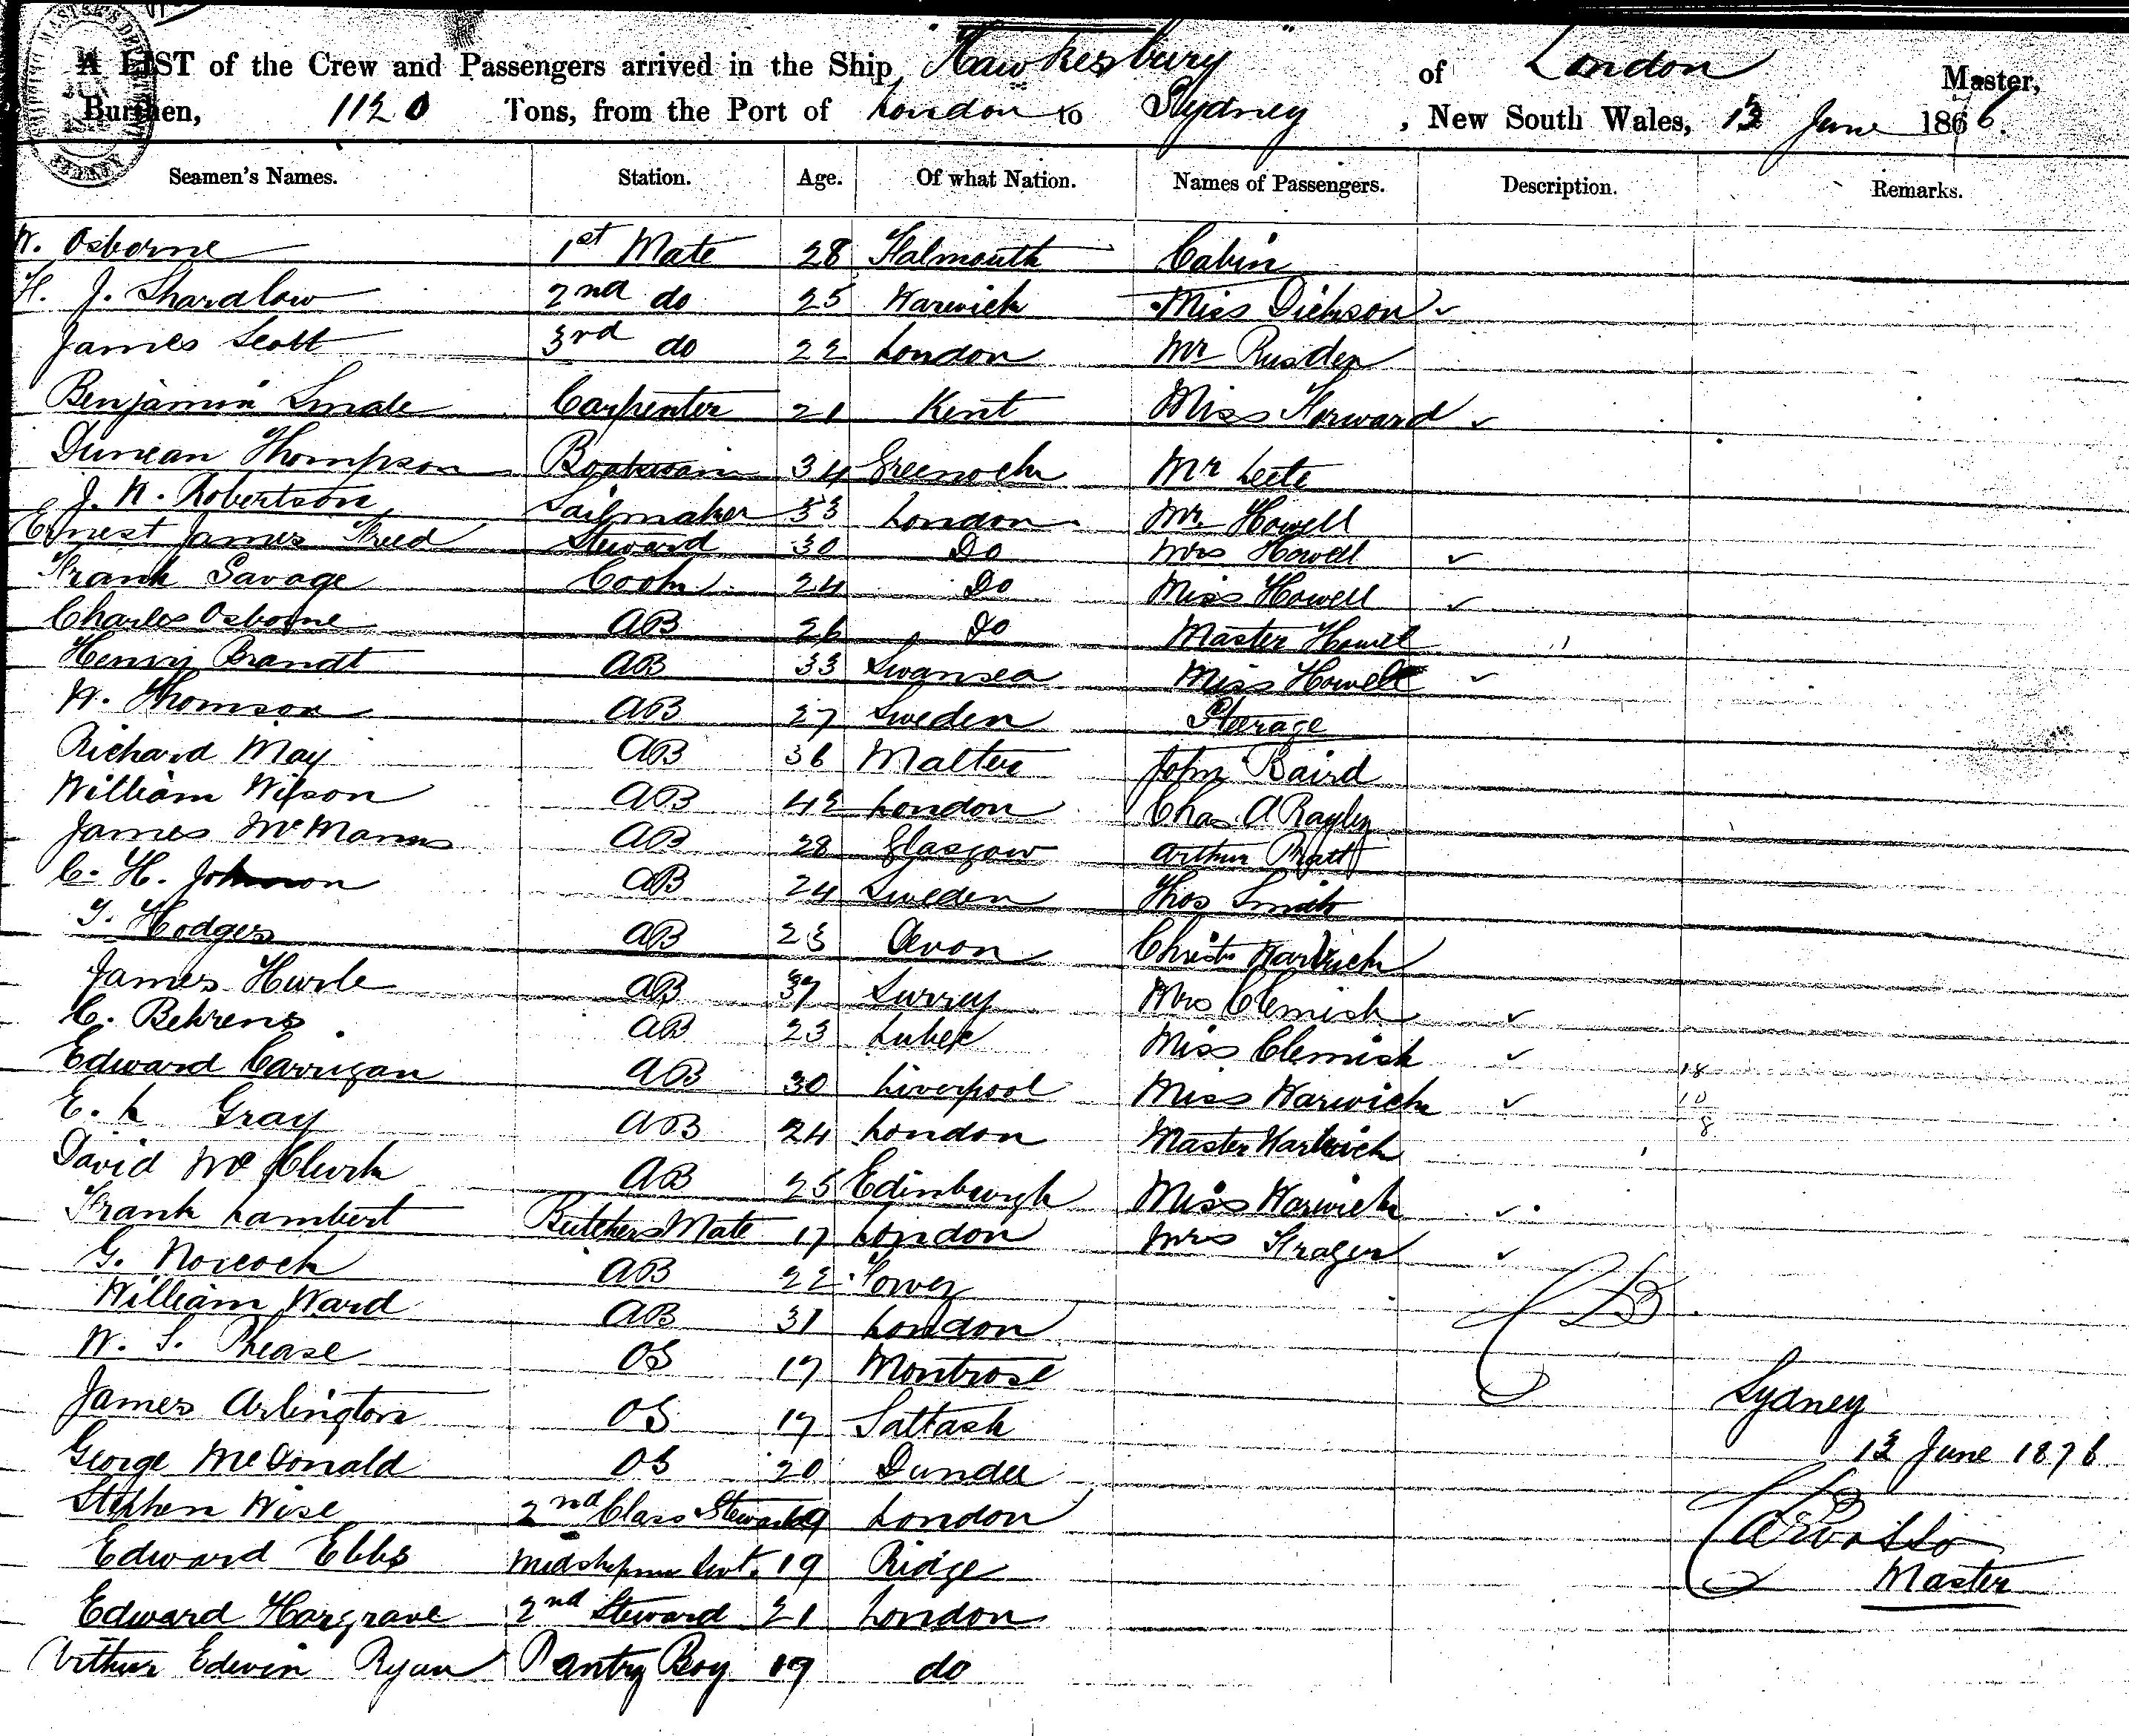 A LIST of the Crew and Passengers arrived in the Ship "Hawkesbury" of London Master,
Burthen, 1120 Tons, from the Port of London to Sydney, New South Wales, 13 June 1876.
Seamen's Names. Station. Age. Of what Nation. Names of Passengers. Description. Remarks.
W. Osborne 1st Mate 28 Falmouth Cabin
H. J. Shardlow 2nd do 25 Warwick Miss Dickson ✓
James Scott 3rd do 22 London Mr Rusden
Benjamin Carpenter 21 Kent Miss Forward ✓
Duncan Thompson Boatswain 34 Greenock Mr Leete
J. W. Robertson Sailmaker 33 London Mr. Howell
Ernest James Steward 30 Do Mrs Howell ✓
Frank Savage Cook 24 Do Miss Howell ✓
Charles Osborne AB 26 Do Master Howell
Henry Brandt AB 33 Swansea Miss Howell ✓
W. Thomson AB 27 Sweden Steerage
Richard May AB 36 Malta John Baird
William Wilson AB 42 London Chas. A
James McManus AB 28 Glasgow Arthur Pratt
C. H. Johnson AB 24 Sweden Thos Smith
T. Hodges AB 23 Avon Christr Warwick
James Hurle AB 37 Surrey Mrs Clemish ✓
C. Behrens AB 23 Lubek Miss Clemish ✓
Edward Carrigan AB 30 Liverpool Miss Warwick ✓ 18
10
8
E. L Gray AB 24 London Master Warwick
David Mc AB 25 Edinburgh Miss Warwick ✓
Frank Lambert Butchers Mate 17 London Mrs ✓
G. Norcock AB 22 Fowey
William Ward AB 31 London
W. S. Prease OS 17 Montrose
James Arlington OS 17 Saltash Sydney
George McDonald OS 20 Dundee 13 June 1876
Stephen Wise 2nd Class Steward 19 London
Edward Ebbs Midshipmen Servt. 19 Ridge Master
Edward Hargrave 2nd Steward 21 London
Arthur Edwin Ryan Pantry Boy 19 do